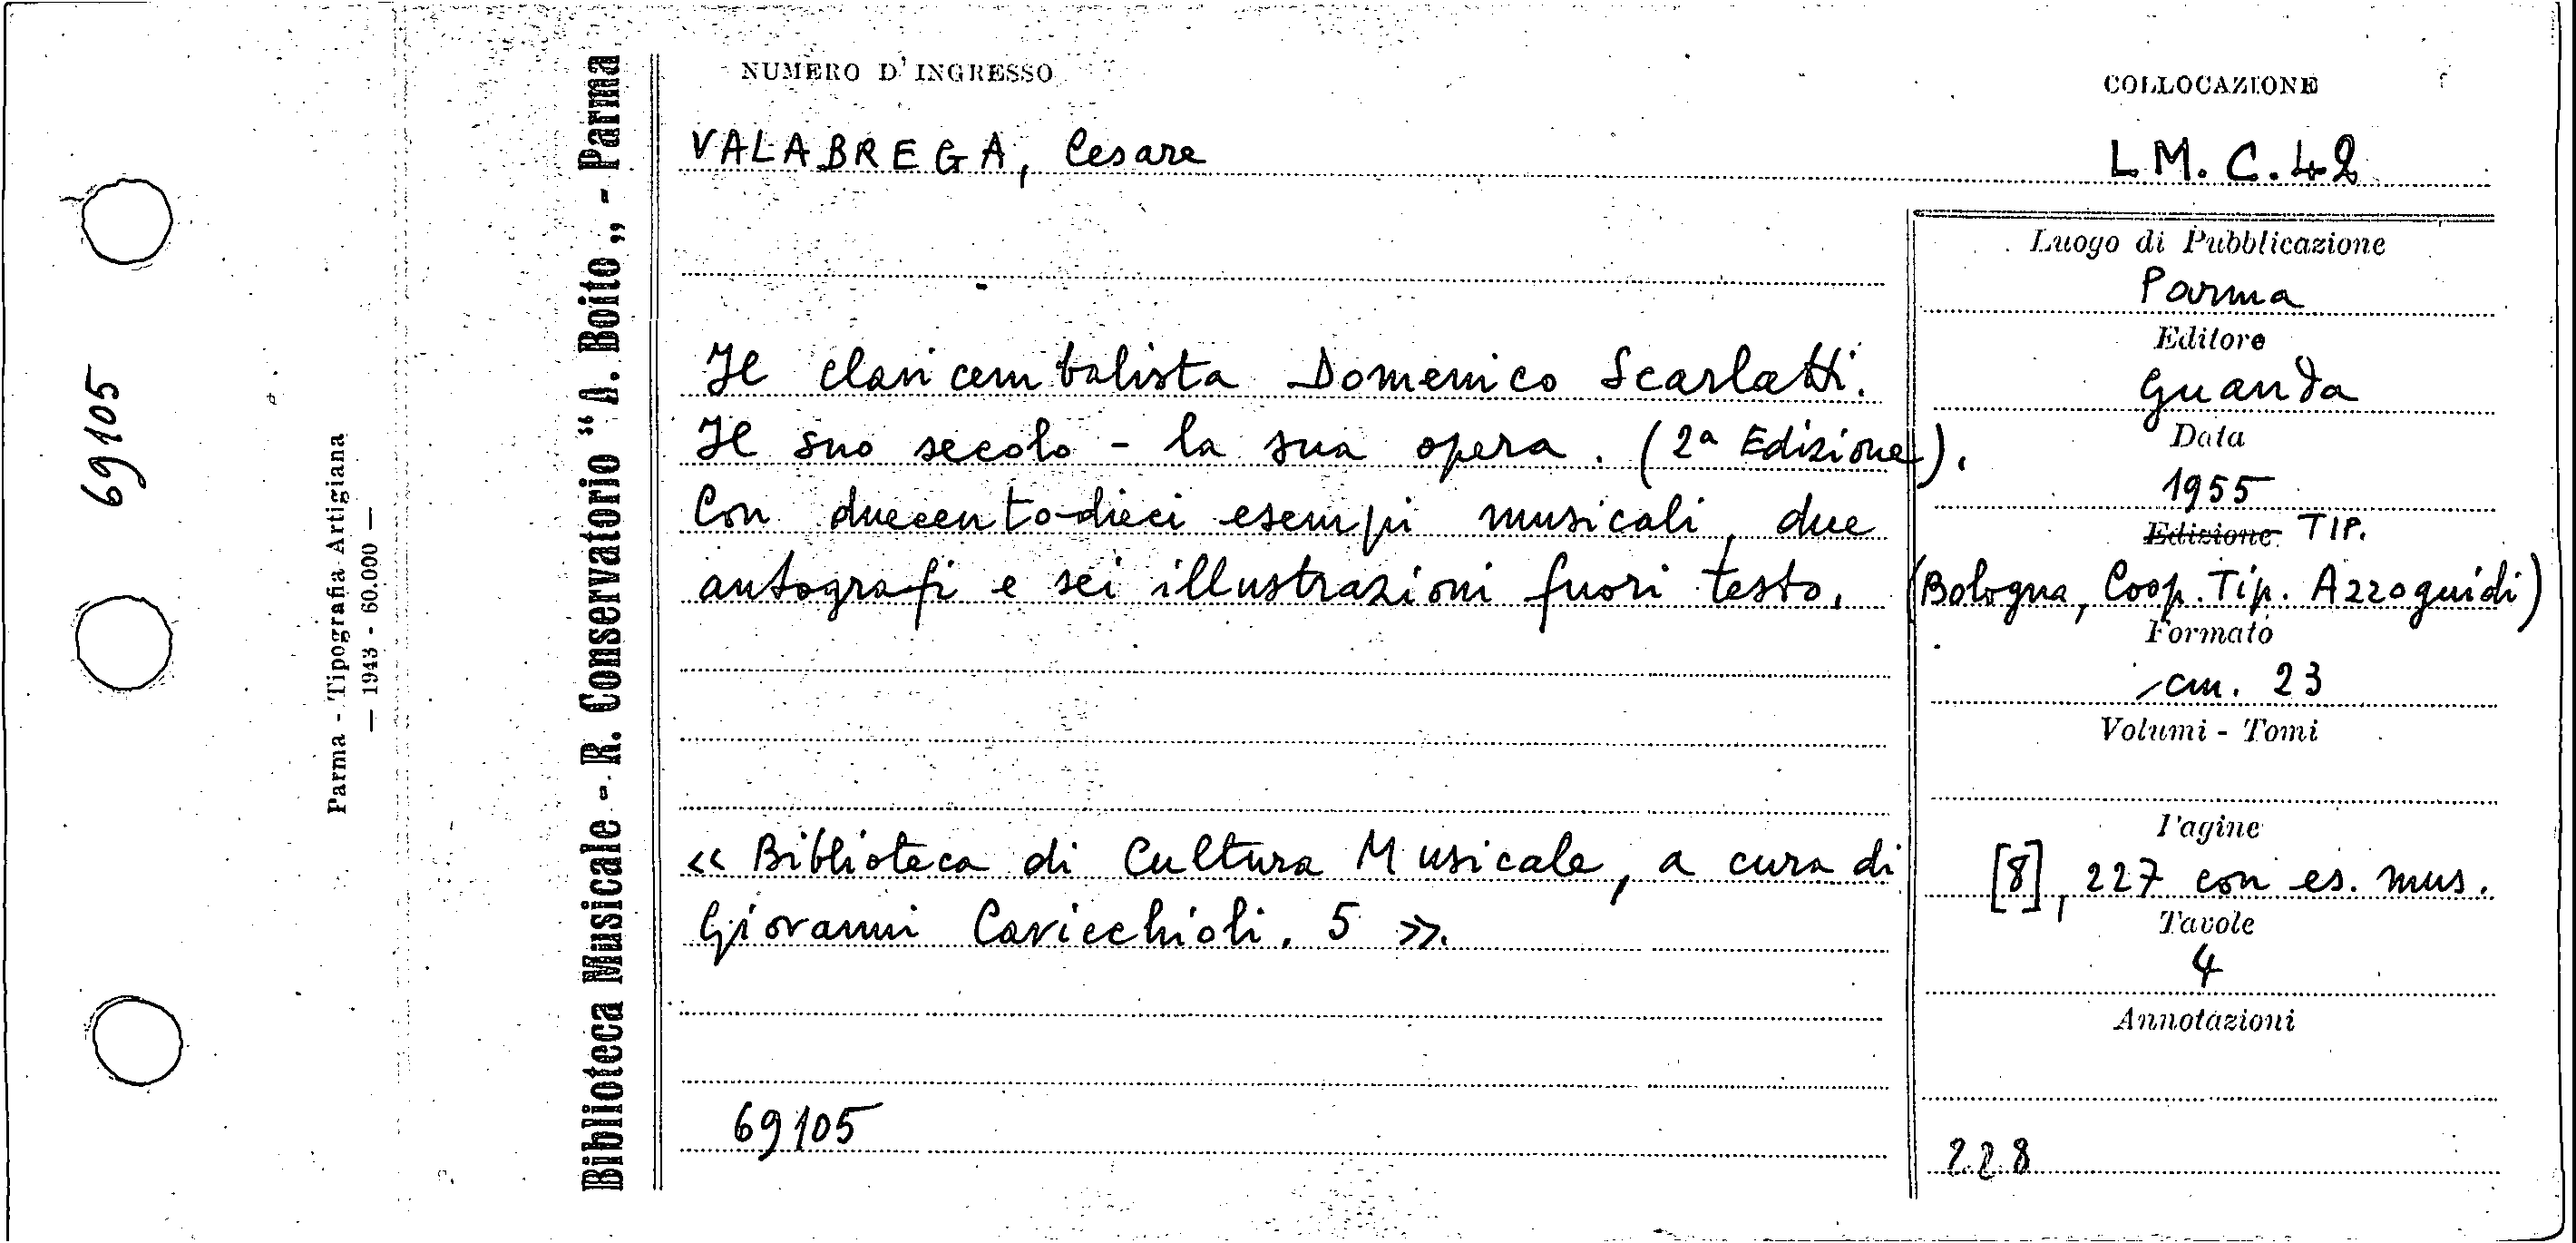 69105
Parma - Tipografia Artigiana
— 1943 - 60.000 —
Biblioteca Musicale - R. Conservatorio “A. Boito„ - Parma
NUMERO D'INGRESSO
COLLOCAZIONE
VALABREGA, Cesare
L.M. C.42
Il clavicembalista Domenico Scarlatti.
Il suo secolo - la sua opera. (2ª Edizione).
Con duecento-dieci esempi musicali, due
autografi e sei illustrazioni fuori testo.
« Biblioteca di Cultura Musicale, a cura di
Giovanni Cavicchioli. 5 ».
69105
Luogo di Pubblicazione
Parma
Editore
Guanda
Data
1955
Edizione TIP.
(Bologna, Coop. Tip. Azzoguidi)
Formato
cm. 23
Volumi - Tomi
Pagine
[8], 227 con es. mus.
Tavole
4
Annotazioni
228